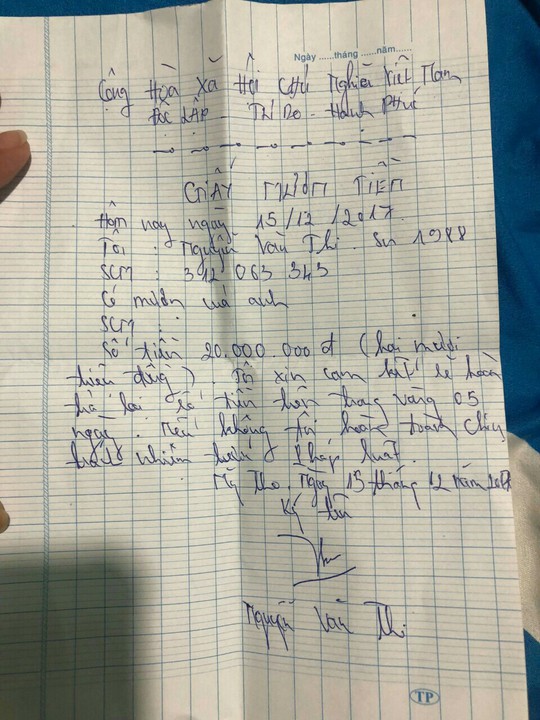 Ngày ......tháng ......năm......
Cộng Hòa Xã Hội Chủ Nghĩa Việt Nam
Độc Lập - Tự Do - Hạnh Phúc
GIẤY MƯỢN TIỀN
Hôm nay ngày 15/12/2017
Tôi : Nguyễn Văn Thi. Sn 1988
SCM : 312 063 343
Có mượn của anh
SCM :
Số tiền 20.000.000đ (hai mươi
triệu đồng). Tôi xin cam kết sẽ hoàn
trả lại số tiền trên trong vòng 05
ngày. Nếu không tôi hoàn toàn chịu
trách nhiệm trước pháp luật.
Mỹ Tho, ngày 15 tháng 12 năm 2017
Ký tên
Nguyễn Văn Thi
TP